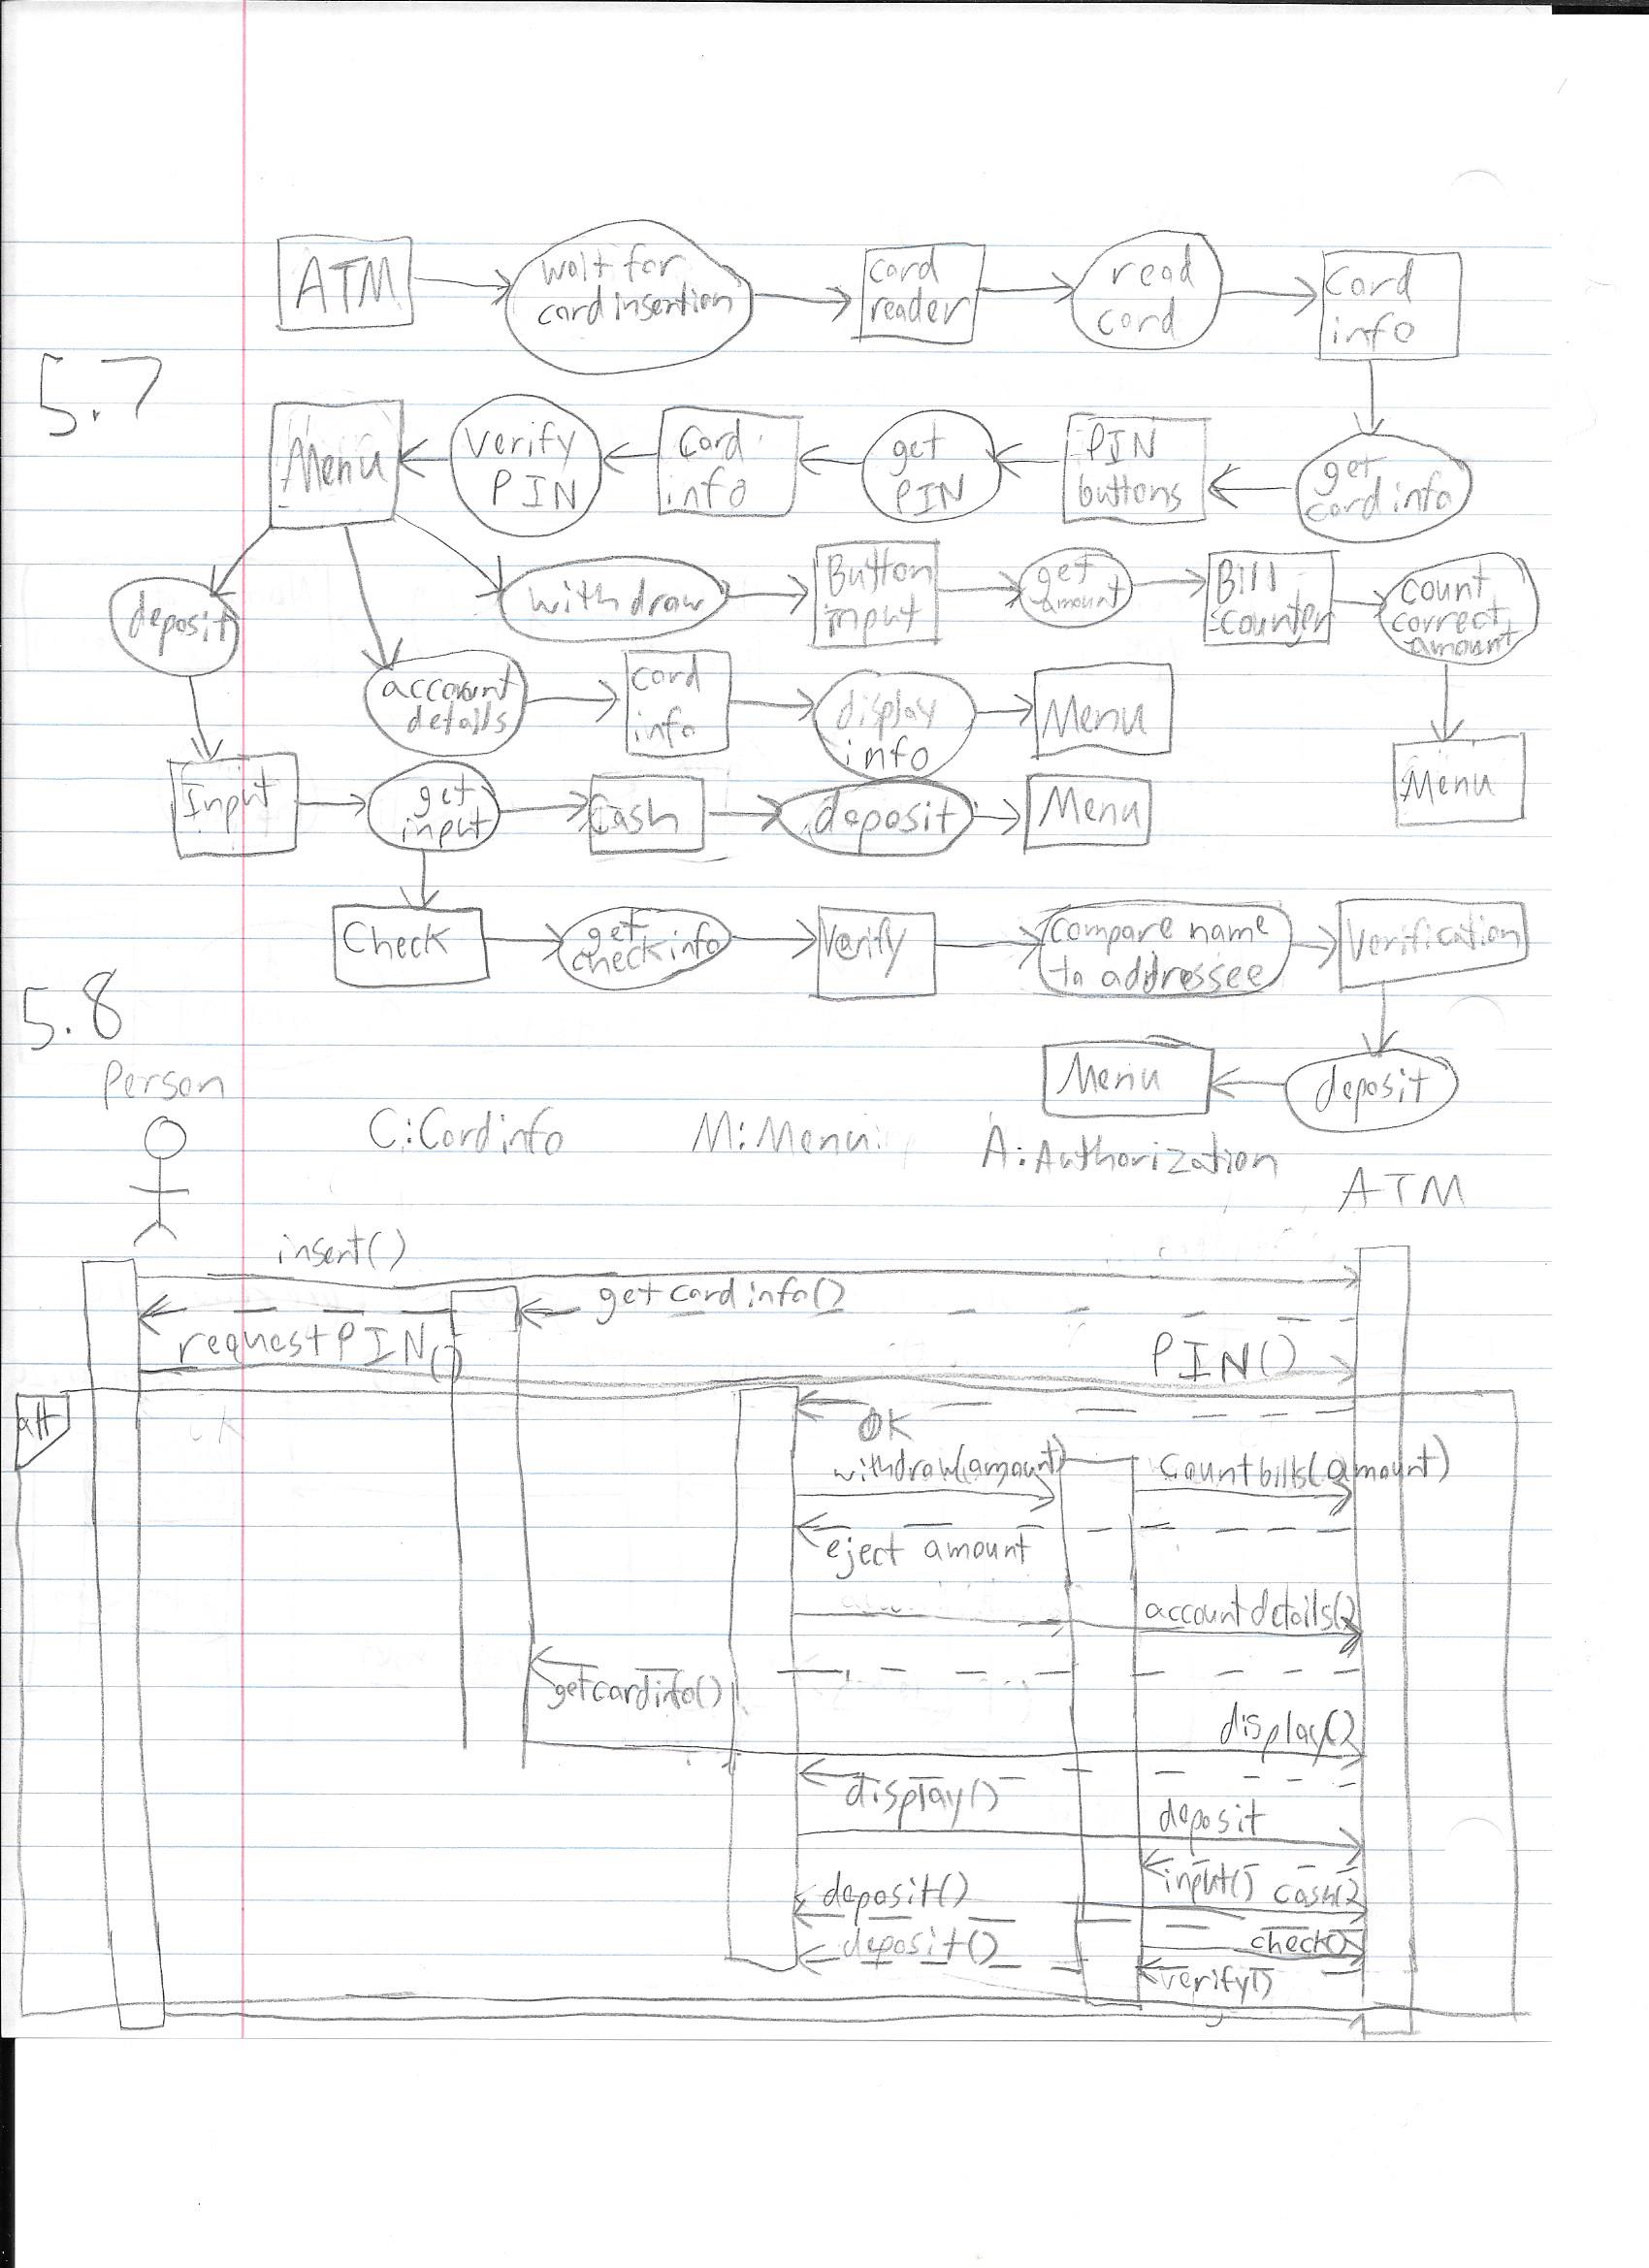 5.7
ATM
wait for
card insertion
card
reader
read
card
Card
info
Menu
verify
PIN
Card
info
get
PIN
PIN
buttons
get
card info
deposit
withdraw
Button
input
get
amount
Bill
counter
count
correct
amount
account
details
card
info
display
info
Menu
Menu
Input
get
input
Cash
deposit
Menu
Check
get
check info
Verify
compare name
to addressee
Verification
Menu
deposit
5.8
Person
C:Cardinfo
M:Menu
A:Authorization
ATM
insert()
getcardinfo()
requestPIN()
PIN()
alt
OK
withdraw(amount)
Countbills(amount)
eject amount
accountdetails()
getcardinfo()
display()
display()
deposit
input()
cash()
deposit()
deposit()
check()
verify()